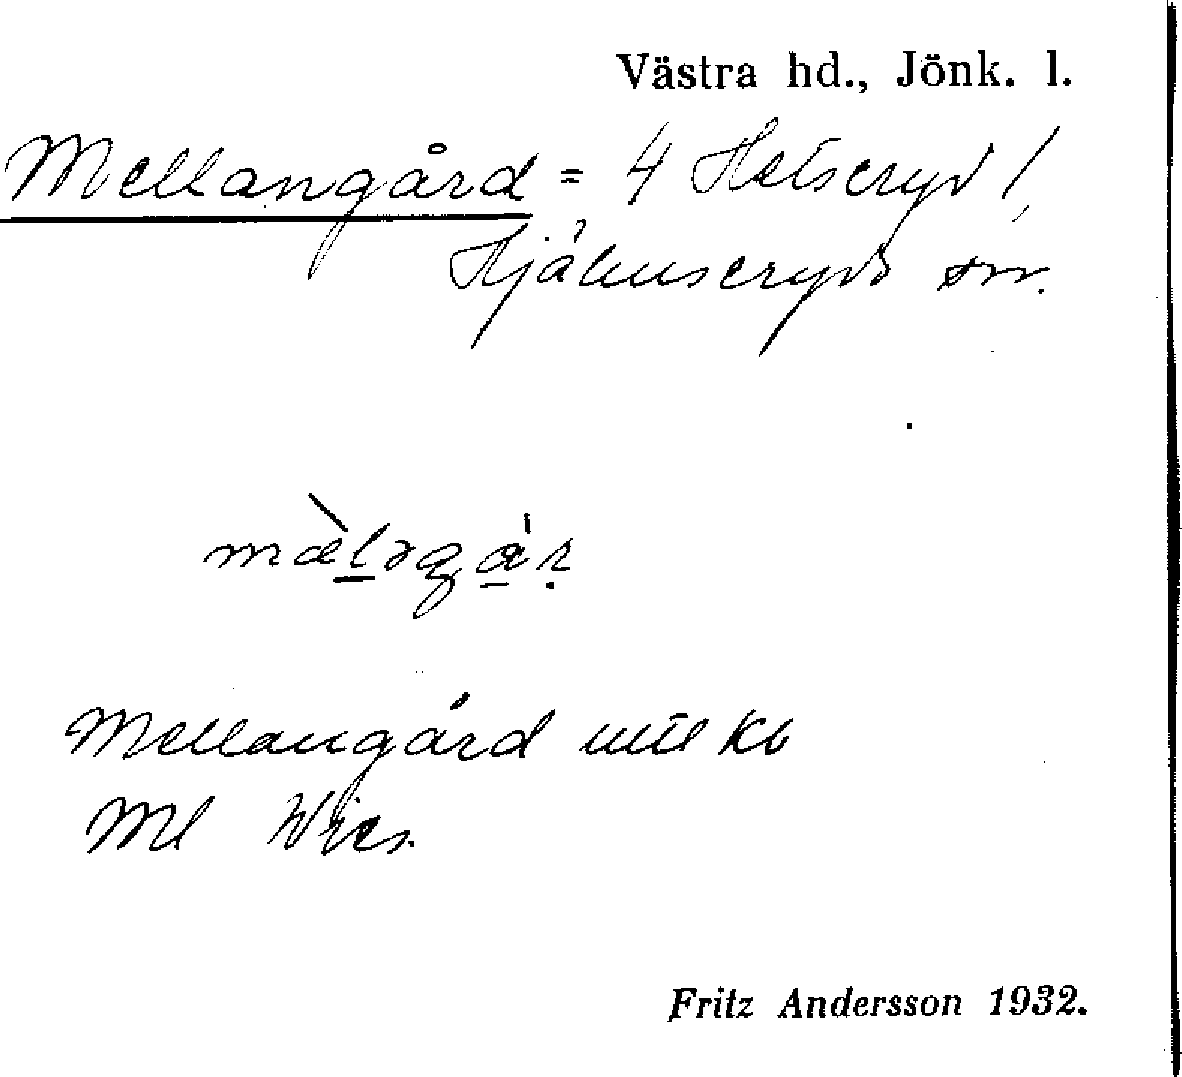 Västra hd., Jönk. l.
Mellangård = 4 Hatseryd /,
Hjälmseryds sn.
mæ̀ləgár
Mellangård
Ml
Fritz Andersson 1932.